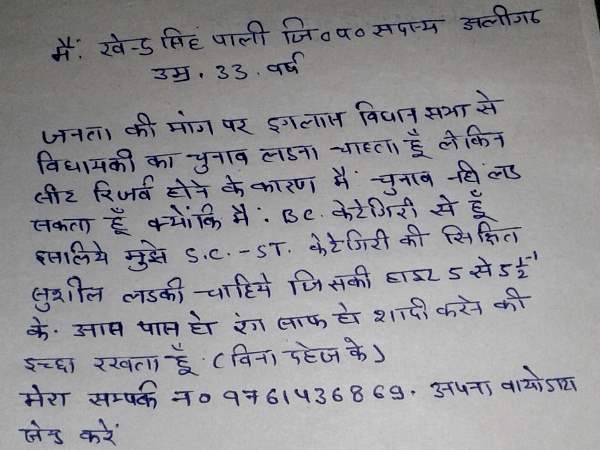 मैं: रवेन्ड्र सिंह पाली जि० प० सदस्य अलीगढ
उम्र. 33. वर्ष
जनता की मांग पर इगलास विधान सभा से
विधायकी का चुनाव लडना चाहता हूँ लेकिन
सीट रिजर्व होने के कारण मैं चुनाव नही लड
सकता हूँ क्योंकि मैं. B.C. केटेगिरी से हूँ
इसलिये मुझे S.C.-ST. केटेगिरी की सिक्षित
सुशील लडकी चाहिये जिसकी हाइट 5 से 5½
के. आस पास हो रंग साफ हो शादी करने की
इच्छा रखता हूँ. (विना दहेज के)
मेरा सम्पर्क न० 9761436869. अपना वायोडाटा
सेन्ड करें